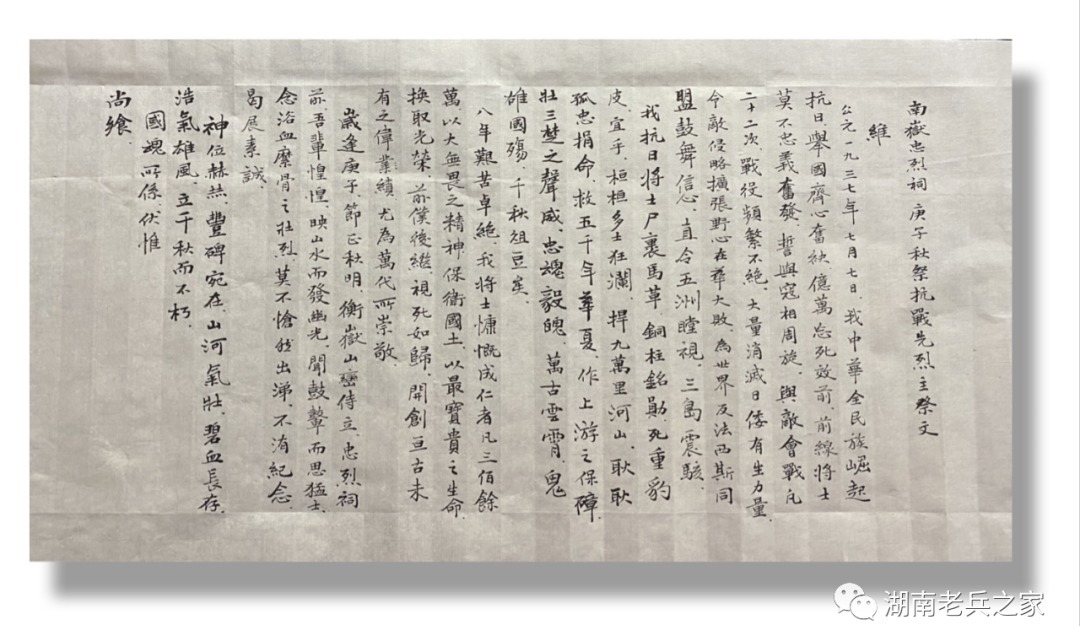 南嶽忠烈祠庚子秋祭抗戰先烈主祭文
維
公元一九三七年七月七日、我中華全民族崛起
抗日、舉國齊心奮袂億萬忘死效前、前線將士
莫不忠義奮發、誓與寇相周旋、與敵會戰凡
二十二次、戰役頻繁不絕、大量消滅日倭有生力量、
令敵侵略擴張野心在華大敗、為世界反法西斯同
盟鼓舞信心、直令五洲瞠視、三島震駭、
我抗日將士尸裹馬革、銅柱銘勛、死重豹
皮、宜乎、桓桓多士狂瀾、捍九萬里河山、耿耿
孤忠捐命、救五千年華夏、作上游之保障、
壯三楚之聲威、忠魂毅魄、萬古雲霄、鬼
雄國殤、千秋俎豆矣、
八年艱苦卓絕、我將士慷慨成仁者凡三佰餘
萬以大無畏之精神保衛國土、以最寶貴之生命
換取光榮、前僕後繼視死如歸、開創亘古未
有之偉業績、尤為萬代所崇敬、
歲逢庚子、節正秋明、衡嶽山巒侍立、忠烈祠
前吾輩惶惶、映山水而發幽光、聞鼓鼙而思猛士、
念浴血縻骨之壯烈、莫不愴然出涕、不有紀念、
曷展素誠、
神位赫赫、豐碑宛在、山河氣壯、碧血長存、
浩氣雄風、立千秋而不朽、
國魂所係、伏惟
尚饗、
湖南老兵之家